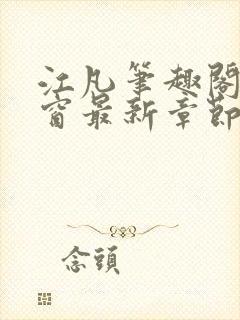 江凡筆趣閣
窗最新章節
念頭